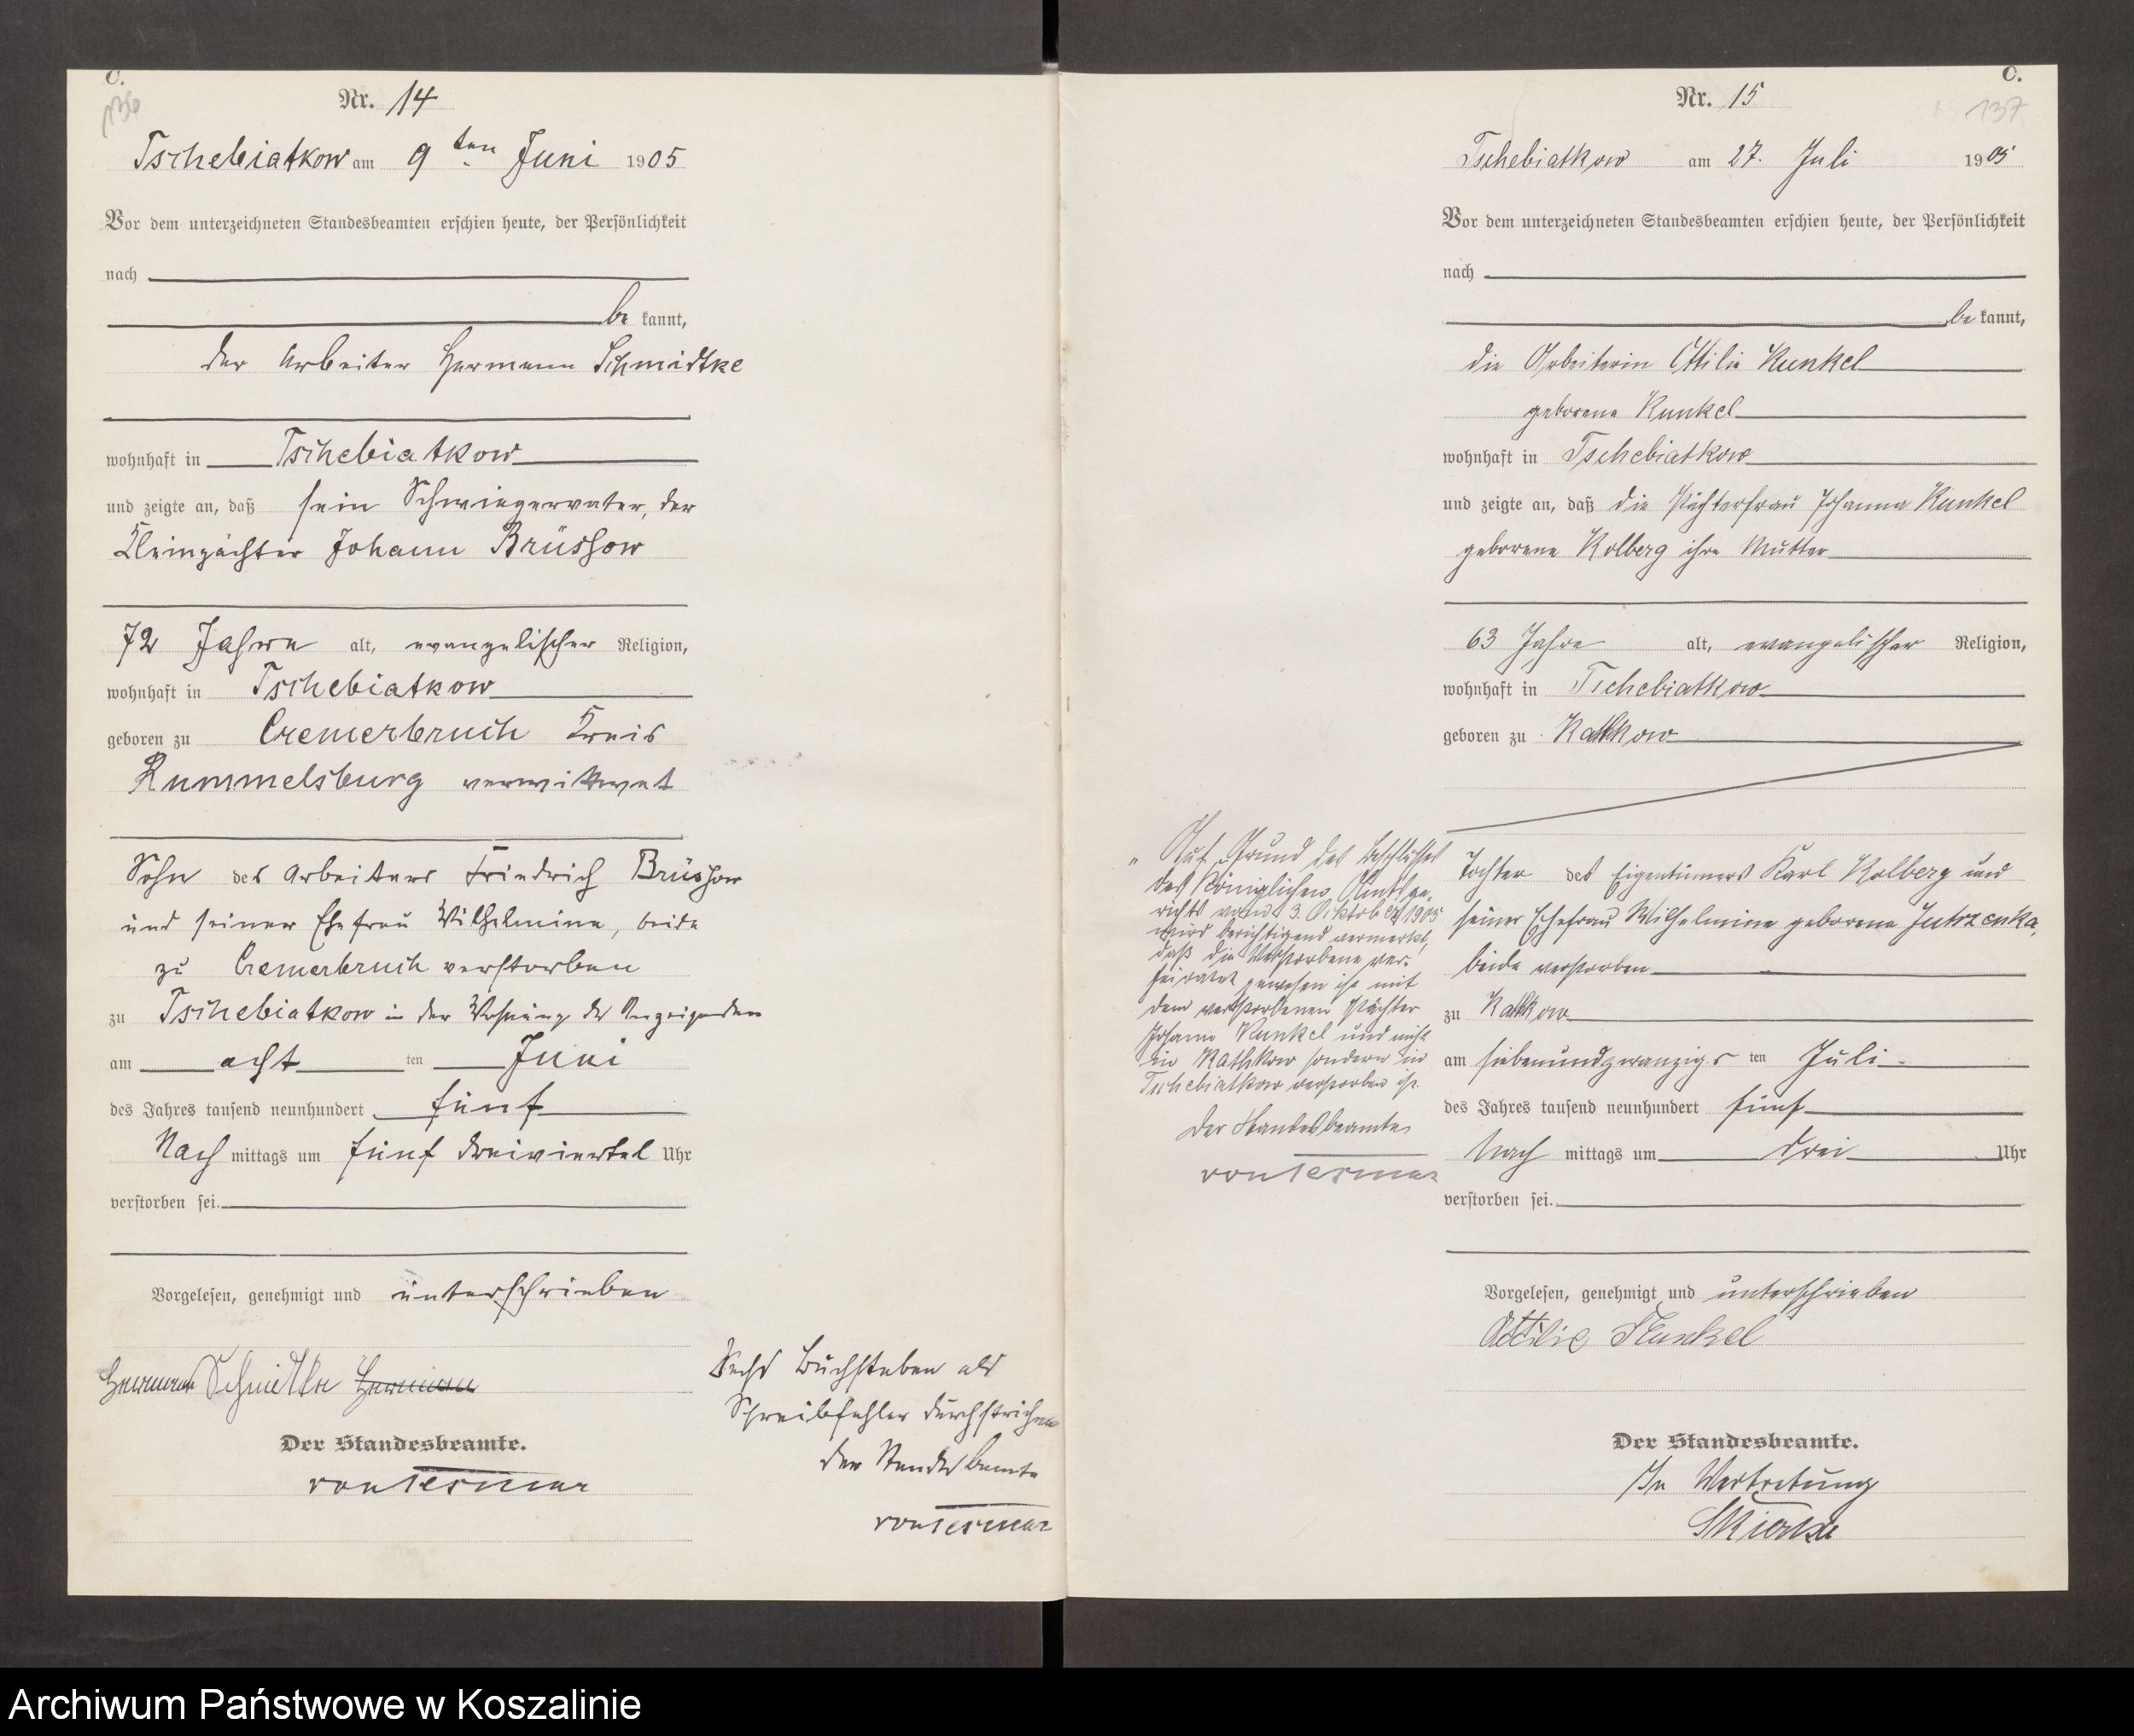 C.
136
Nr. 14
Tschebiatkow am 9ten Juni 1905
Vor dem unterzeichneten Standesbeamten erschien heute, der Persönlichkeit
nach
be kannt,
der Arbeiter Hermann Schmidtke
wohnhaft in Tschebiatkow
und zeigte an, daß sein Schwiegervater, der
Kleinpächter Johann Brüssow
72 Jahre alt, evangelischer Religion,
wohnhaft in Tschebiatkow
geboren zu Cremerbruch Kreis
Rummelsburg verwittwet
Sohn des Arbeiters Friedrich Brüssow
und seiner Ehefrau Wilhelmine, beide
zu Cremerbruch verstorben
zu Tschebiatkow in der Wohnung des Anzeigenden
am acht ten Juni
des Jahres tausend neunhundert fünf
Nach mittags um fünf dreiviertel Uhr
verstorben sei.
Vorgelesen, genehmigt und unterschrieben
Hermann Schmidtke Hermann
Der Standesbeamte.
von Tesmar
Sechs Buchstaben als
Schreibfehler durchstrichen
der Standesbeamte
von Tesmar
C.
137
Nr. 15
Tschebiatkow am 27. Juli 1905
Vor dem unterzeichneten Standesbeamten erschien heute, der Persönlichkeit
nach
be kannt,
die Arbeiterin Ottilie Kunkel
geborene Kunkel
wohnhaft in Tschebiatkow
und zeigte an, daß die Pächterfrau Johanna Kunkel
geborene Kolberg ihre Mutter
63 Jahre alt, evangelischer Religion,
wohnhaft in Tschebiatkow
geboren zu Kathkow
Tochter des Eigentümers Karl Kolberg und
seiner Ehefrau Wilhelmine geborene Jutrzenka,
beide verstorben
zu Kathkow
am siebenundzwanzigs ten Juli
des Jahres tausend neunhundert fünf
Nach mittags um drei Uhr
verstorben sei.
Vorgelesen, genehmigt und unterschrieben
Ottilie Kunkel
Der Standesbeamte.
In Vertretung
„Auf Grund des Beschlusses
des Königlichen Amtsge-
richts vom 3. Oktober 1905
wird berichtigend vermerkt,
daß die Verstorbene ver-
heiratet gewesen ist mit
dem verstorbenen Pächter
Johann Kunkel und nicht
in Kathkow sondern in
Tschebiatkow verstorben ist.
Der Standesbeamte
von Tesmar
Archiwum Państwowe w Koszalinie